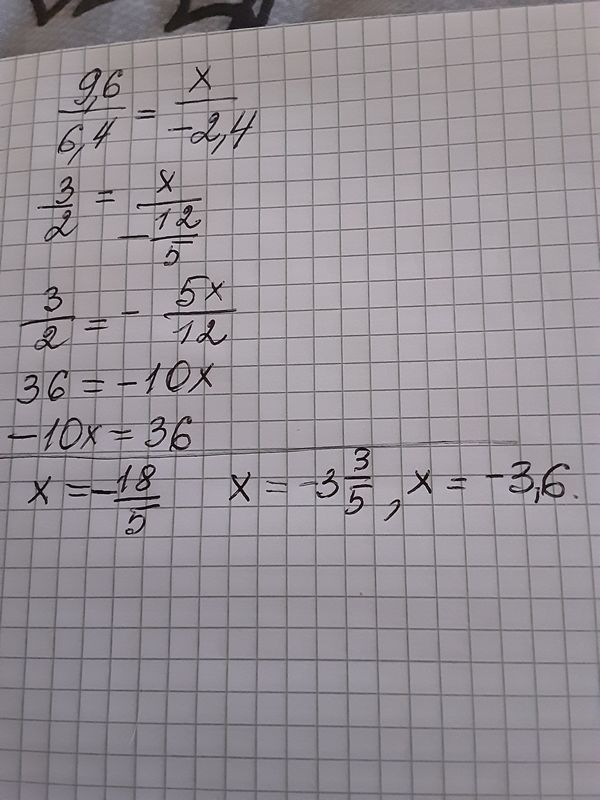 9,6/6,4 = x/-2,4
3/2 = x/-12/5
3/2 = - 5x/12
36 = -10x
-10x = 36
x = -18/5 x = -3 3/5, x = -3,6.